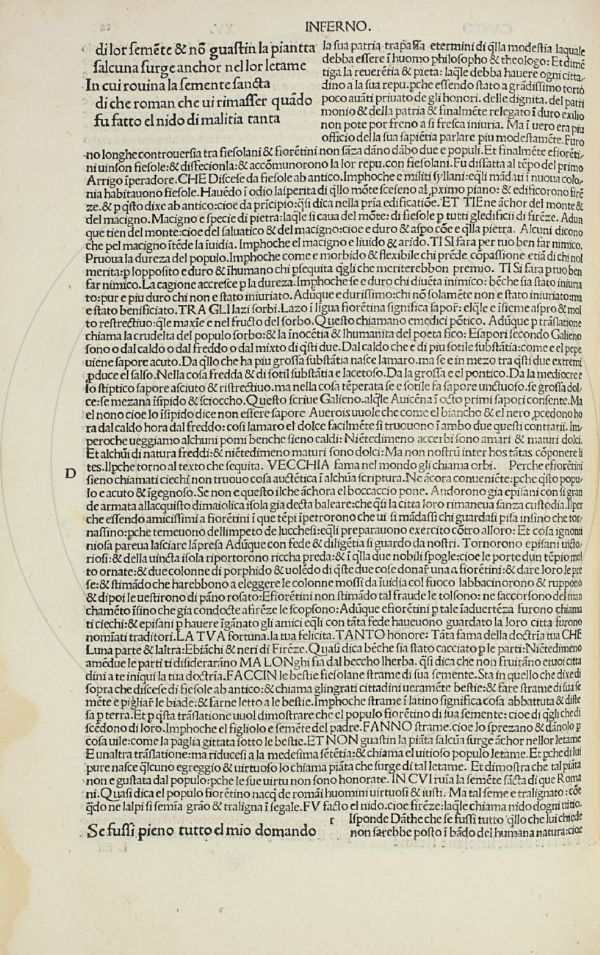 INFERNO.
di lor semēte & nō guastin la piantta
salcuna surge anchor nel lor letame
In cui rouina la semente sancta
di che roman che ui rimasser quādo
fu fatto el nido di malitia tanta
la sua patria trapassa e termini di q̄lla modestia laquale
debba essere ī huomo philosopho & theologo: Et dimē
tiga la reuerētia & pieta: laq̄le debba hauere ogni citta
dino a la sua repu. pche essendo stato a grādissimo tortō
poco auāti priuato de gli honori. delle dignita. del patri
monio & della patria & finalmēte relegato ī duro exilio
non pote por freno a si fresca iniuria. Ma ī uero era piu
officio della sua sapiētia parlare piu modestamēte. Furo
no longhe controuersia tra fiesolani & fiorētini non sāza dāno dābo due e populi. Et finalmēte efiorēti
ni uinson fiesole: & dissecionla: & accōmunorono la lor repu. con fiesolani. Fu disfatta al tēpo del primo
Arrigo īperadore. CHE Discese da fiesole ab antico. Imphoche e militi syllani: eq̄li mādati ī nuoua colo
nia habitauono fiesole. Hauēdo ī odio lasperita di q̄llo mōte scesono al pximo piano: & edificorono firē
ze. & p q̄sto dixe ab antico: cioe da prīcipio: q̄si dica nella pria edificatiōe. ET TIEne āchor del monte &
del macigno. Macigno e specie di pietra: laq̄le si caua del mōte: di fiesole p tutti gledificii di firēze. Adun
que tien del monte: cioe del saluatico & del macigno: cioe e duro & aspo cōe e q̄lla pietra. Alcuni dicono
che pel macigno ītēde la iuidia. Imphoche el macigno e liuido & arido. TI SI fara per tuo ben far nimico.
Pruoua la dureza del populo. Imphoche come e morbido & flexibile chi prēde cōpassione etiā di chi nol
merita: p lopposito e duro & īhumano chi psequita q̄gli che meriterebbon premio. TI SI fara p tuo ben
far nimico. La cagione accresce p la dureza. Imphoche se e duro chi diuēta inimico: bēche sia stato iniuria
to: pur e piu duro chi non e stato iniuriato. Adūque e durissimo: chi nō solamēte non e stato iniuriato: ma
e stato benificiato. TRA GLI lazi sorbi. Lazo ī ligua fiorētina significa sapor: elq̄le e īsieme aspro & mol
to restrectiuo: q̄le maxīe e nel fructo del sorbo. Questo chiamano e medici pōtico. Adūque p trāslatione
chiama la crudelta del populo sorbo: & la inocētia & lhumanita del poeta fico: E sapori secondo Galieno
sono o dal caldo o dal freddo o dal mixto di q̄sti due. Dal caldo che e di piu sotile substātia: come e el pepe
uiene sapore acuto. Da q̄llo che ha piu grossa substātia nasce lamaro. ma se e in mezo tra q̄sti due extremi
pduce el salso. Nella cosa fredda & di sotil substātia e lacetoso. Da la grossa e el pontico. Da la mediocre e
lo stiptico sapore asciuto & ristrectiuo. ma nella cosa tēperata se e sotile fa sapore unctuoso. se grossa dol
ce: se mezana isipido & scioccho. Questo scriue Galieno. alq̄le Auicēna ī octo primi sapori consente. Ma
el nono cioe lo isipido dice non essere sapore Auerois uuole che come el biancho & el nero pcedono ho
ra dal caldo hora dal freddo: cosi lamaro el dolce facilmēte si truouono ī ambo due questi contrarii. Im
peroche ueggiamo alchuni pomi benche sieno caldi: Niētedimeno accerbi sono amari & maturi dolci.
Et alchūi di natura freddi: & niētedimeno maturi sono dolci: Ma non nostrū inter hos tātas cōponere li
tes. Ilpche torno al texto che sequita. VECCHIA fama nel mondo gli chiama orbi. Perche efiorētini
D
sieno chiamati ciechi non truouo cosa auctētica ī alchūa scriptura. Ne ācora conueniēte: pche q̄sto popu
lo e acuto & īgegnoso. Se non e questo ilche āchora el boccaccio pone. Andorono gia episani con si gran
de armata allacquisto dimaiolica isola gia decta baleare: che q̄ti la citta loro rimaneua sanza custodia. Ilper
che essendo amicissimi a fiorētini ī que tēpi īpetrorono che ui si mādassi chi guardasi pisa insino che tor
nassino: pche temeuono dellimpeto de lucchesi: eq̄li preparauono exercito cōtro alloro: Et cosa ignomi
niosa pareua lasciare lāpresa Adūque con fede & diligētia si guardo da nostri. Tornorono episani uicto
riosi: & della uincta isola riportorono riccha preda: & ī q̄lla que nobili spogle: cioe le porte dun tēpio mol
to ornate: & due colonne di porphido & uolēdo di q̄ste due cose donar una a fiorētini: & dare loro le pre
se: & stimādo che harebbono a eleggere le colonne mossi da īuidia col fuoco labbacinorono & ruppono
& di poi le uestirono di pāno rosato: E fiorētini non stimādo tal fraude le tolsono: ne saccorson del man
chamēto īsino che gia condocte a firēze le scopsono: Adūque efiorētini p tale īaduertēza furono chiama
ti ciechi: & episani p hauere īgānato gli amici eq̄li con tāta fede haueuono guardato la loro citta furono
nomīati traditori. LA TVA fortuna. la tua felicita. TANTO honore: Tāta fama della doctria tua CHE
Luna parte & laltra: E biāchi & neri di Firēze. Quasi dica bēche sia stato cacciato p le parti: Niētedimeno
amēdue le parti ti disideraráno MA LONghi sia dal beccho lherba. q̄si dica che non fruirāno etuoi citta
dini a te iniqui la tua doctria. FACCIN le bestie fiesolane strame di sua semente. Sta in quello che dixe di
sopra che discese di fiesole ab antico: & chiama glingrati cittadini ueramēte bestie: & fare strame di sua se
mēte e pigliar le biade: & farne letto a le bestie. Imphoche strame ī latino significa cosa abbattuta & diste
sa p terra. Et p q̄sta trāslatione uuol dimostrare che el populo fiorētino di sua semente: cioe di q̄gli che di
scēdono di loro. Imphoche el figliolo e semēte del padre. FANNO strame. cioe lo sprezano & dānolo p
cosa uile: come la paglia gittata sotto le bestie. ET NON guastin la piāta salcūa surge āchor nellor letame
E unaltra trāslatione: ma riducesi a la medesima sētētia: & chiama el uitioso populo letame. Et pche di lui
pure nasce q̄lcuno egreggio & uirtuoso lo chiama piāta che surge di tal letame. Et dimostra che tal piāta
non e gustata dal populo: pche le sue uirtu non sono honorate. IN CVI ruīa la semēte sācta di que Roma
ni. Quasi dica el populo fiorētino nacq̄ de romāi huomini uirtuosi & iusti. Ma tal seme e tralignato: cōe
q̄do ne lalpi si semia grāo & traligna ī segale. FV facto el nido. cioe firēze: laq̄le chiama nido dogni uitio.
Se fussi pieno tutto el mio domando
r Isponde Dāthe che se fussi tutto q̄llo che lui chiede
non sarebbe posto ī bādo del humana natura: cioe